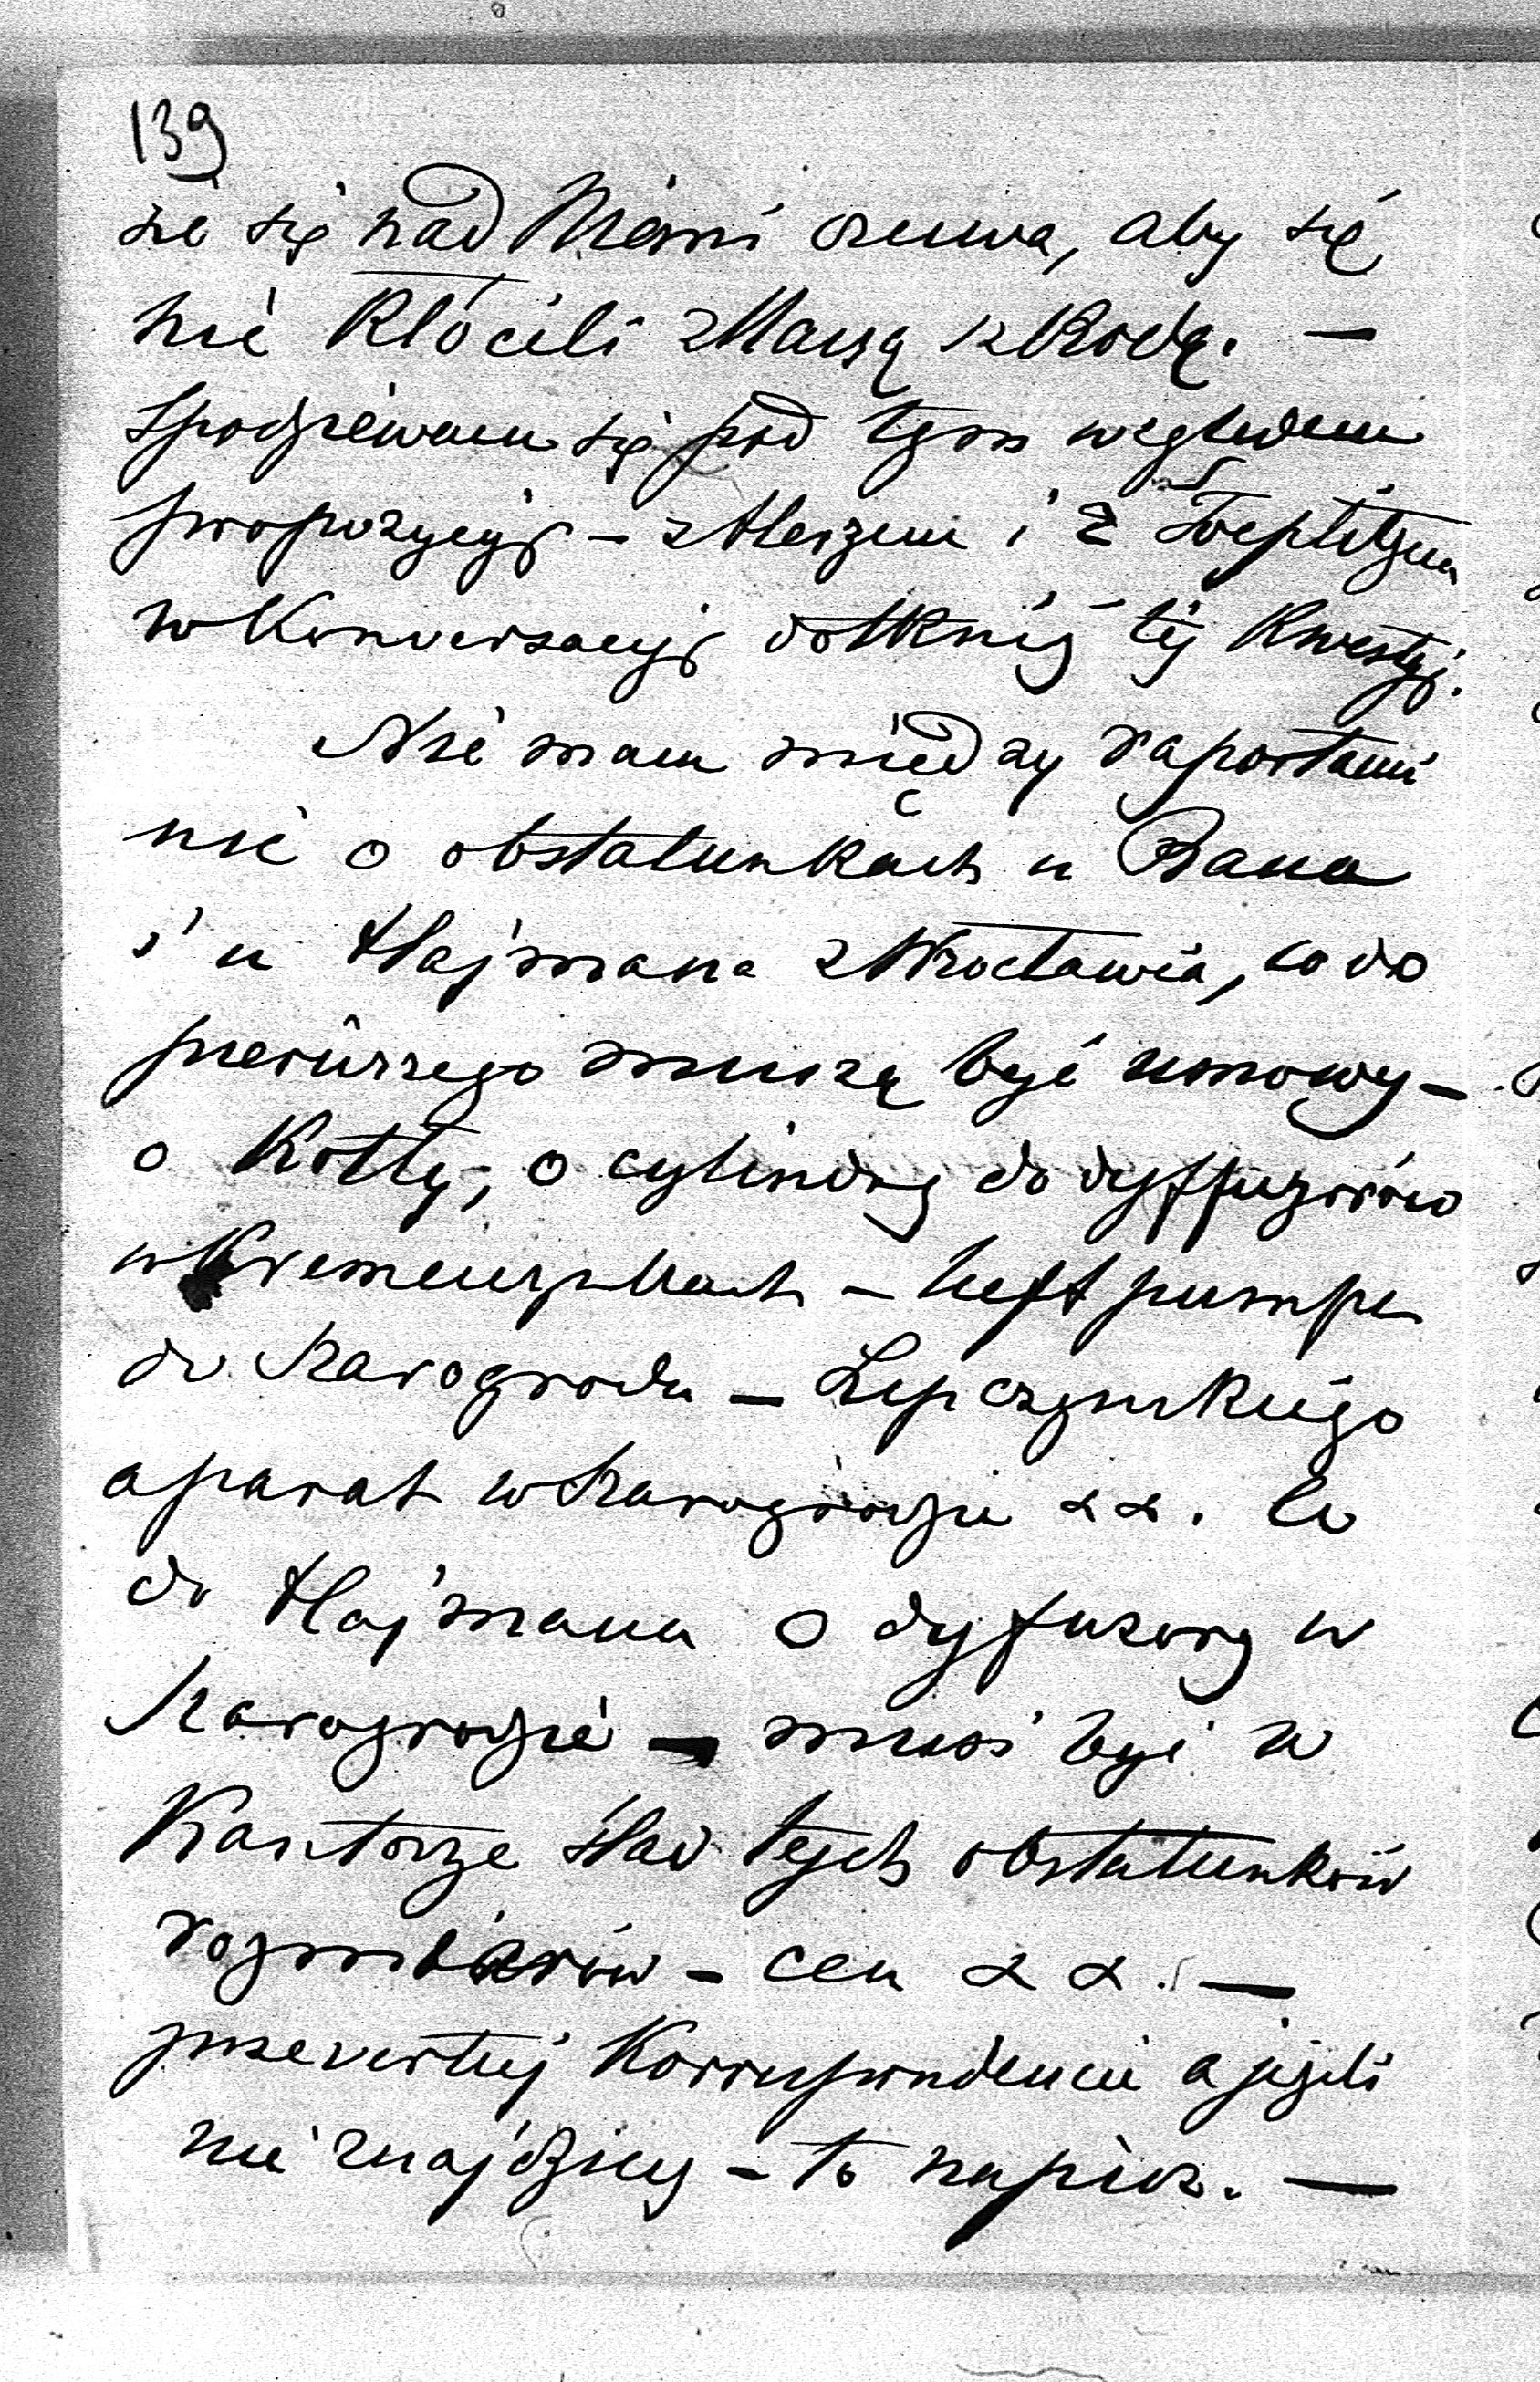 139
że się nad Niemi czuwa, aby się
nie kłócili z Naszą szkodą. —
Spodziewam się pod tym względem
propozycyj — z Herzem i z Toeplitzem
w Konversacyj dotknij tej kwestyj.
Nie mam między raportami
nic o obstalunkach u Bana
i u Hajmana z Wrocławia, co do
pierwszego muszą być umowy —
o Kotły, o cylindry do dyffuzorów
w — luft pumpe
do Szarogrodu — Lipczyńskiego
aparat w Szarogrodzie &&. Co
do Hajmana o dyfuzory w
Szarogrodzie — musi być w
Kantorze ślad tych obstalunków
rozmiarów — cen && . —
przevertuj Korrespondencie a jeżeli
nie znajdziesz — to napisz. —